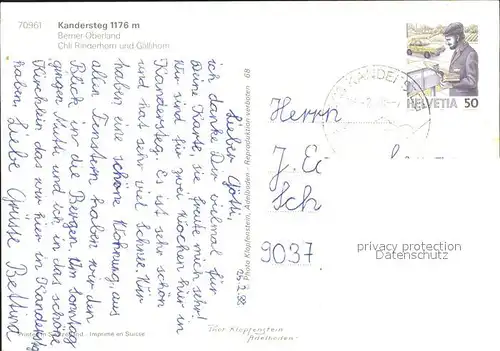 70961
Kandersteg 1176 m
Berner Oberland
Chli Rinderhorn und Gällihorn
Lieber Götti,
ich danke Dir vielmal für
Deine Karte, sie freute mich sehr!
Wir sind für zwei Wochen hier in
Kandersteg. Es ist sehr schön
und hat sehr viel Schnee. Wir
haben eine schöne Wohnung, aus
allen Fenstern haben wir den
Blick in die Bergen. Am Sonntag
gingen Mutti und ich in das schöne
Kirchlein das wir hier in Kandersteg
haben. Liebe Grüsse Bettina
Printed in Switzerland - Imprimé en Suisse
© Photo Klopfenstein, Adelboden - Reproduktion verboten 68
Thor Klopfenstein
Adelboden
KANDERSTEG
HELVETIA 50
Herrn
J. E
Sch
9037
privacy protection
Datenschutz